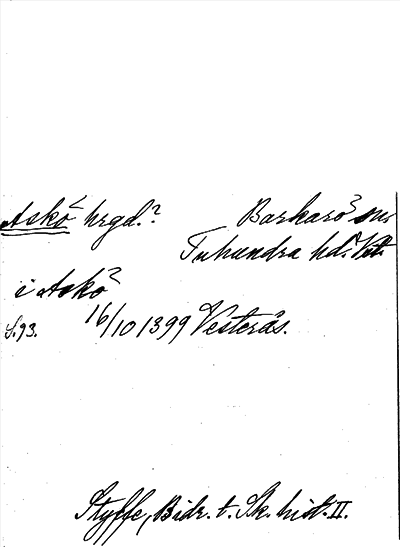 Askö hrgd.? Barkarö sn.
Tuhundra hd. Vstm.
i Askö
S. 93. 16/10 1399 Vesterås.
Styffe, Bidr. t. Sk. hist. II.